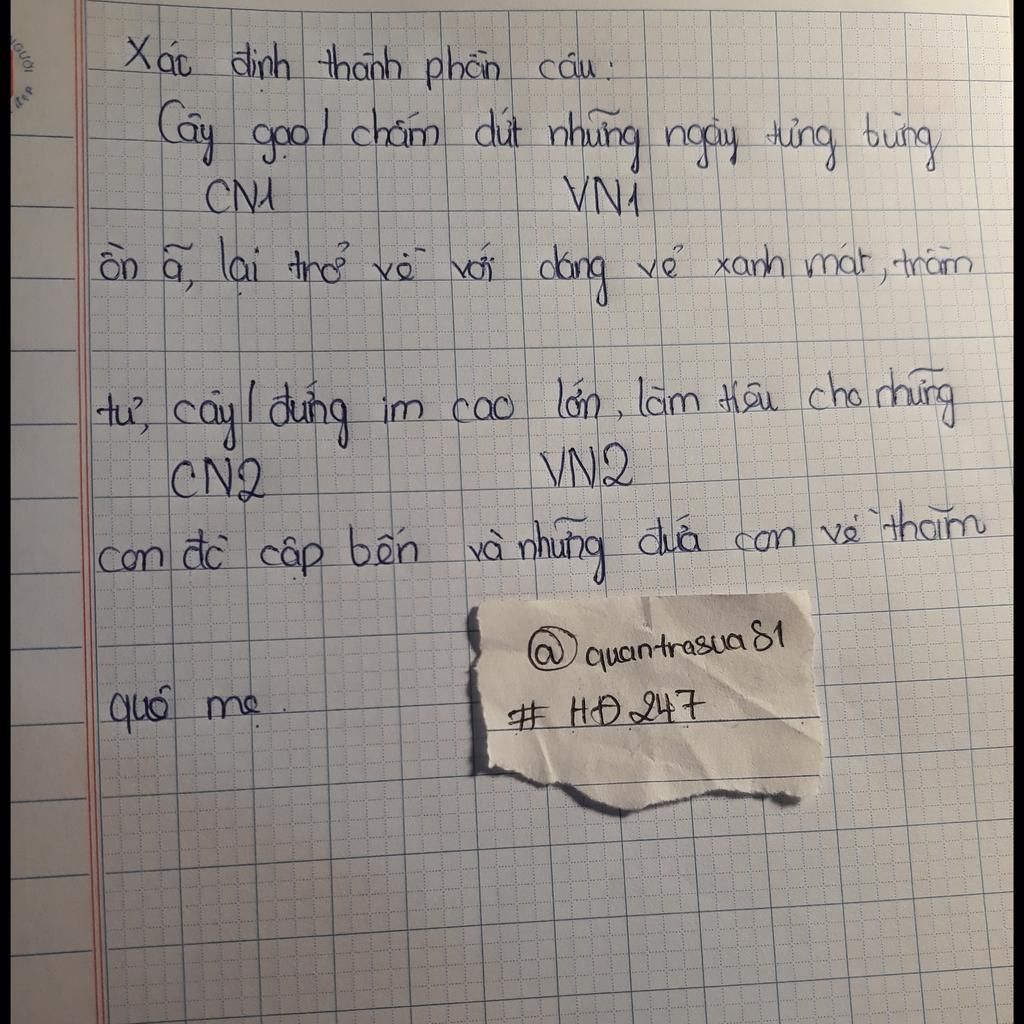 NGƯỜI
ĐẸP
Xác định thành phần câu:
Cây gạo/ chấm dứt những ngày tưng bừng
CN1 VN1
ồn ã, lại trở về với dáng vẻ xanh mát, trầm
tư, cây/ đứng im cao lớn, làm tiêu cho những
CN2 VN2
con đò cập bến và những đứa con về thăm
quê mẹ.
@quantrasua81
# HĐ 247